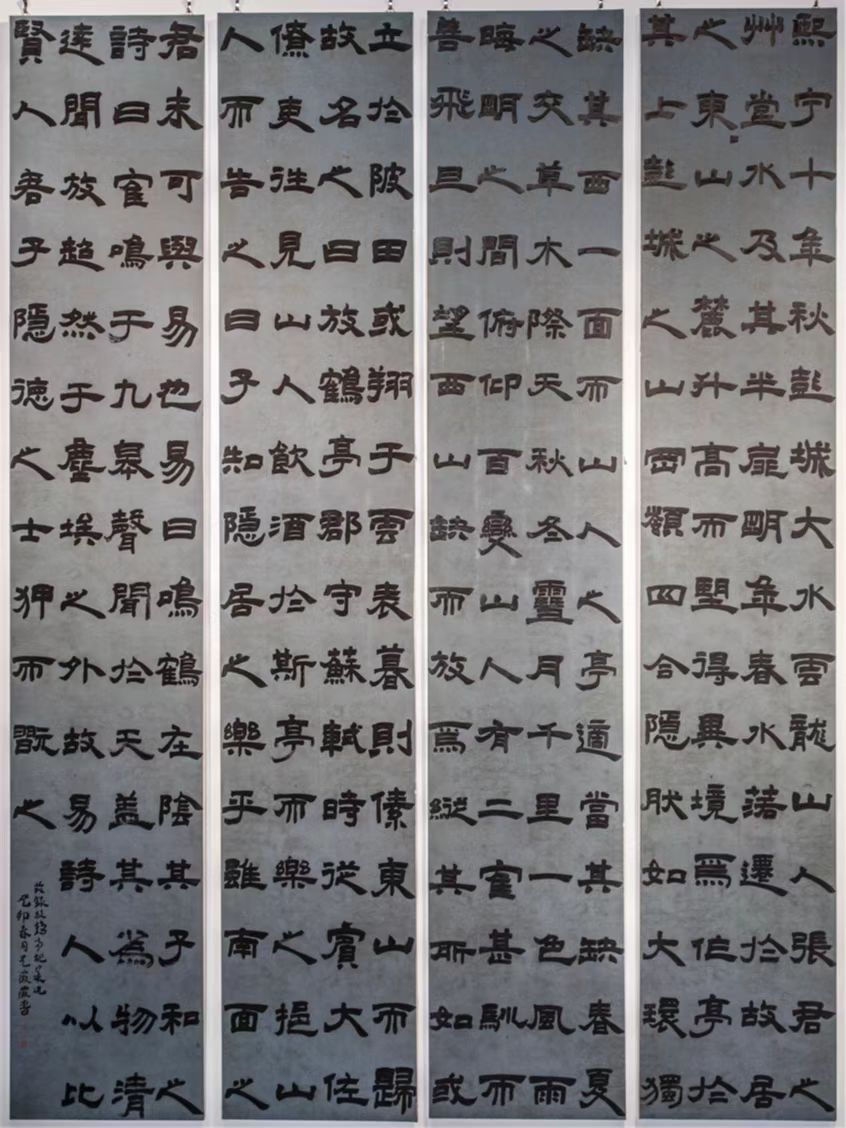 熙宁十年秋彭城大水雲龍山人張君之
艸堂水及其半扉明年春水落遷於故居
之東山之麓升高而望得異境焉作亭於
其上彭城之山岡嶺四合隱肰如大環獨
缺其西一面而山人之亭適當其缺春夏
之交草木際天秋冬雪月千里一色風雨
晦明之間俯仰百變山人有二寉甚馴而
善飛旦則望西山缺而放焉縱其所如或
立於陂田或翔于雲表暮則傃東山而歸
故名之曰放鶴亭郡守蘇軾時從賓大佐
僚吏往見山人飲酒於斯亭而樂之挹山
人而告之曰子知隱居之樂乎雖南面之
君未可與易也易曰鳴鶴在陰其子和之
詩曰寉鳴于九皋聲聞於天蓋其為物清
遠閒放超然于塵埃之外故易詩人以比
賢人君子隱德之士狎而翫之
錄放鶴亭記
癸卯春月書